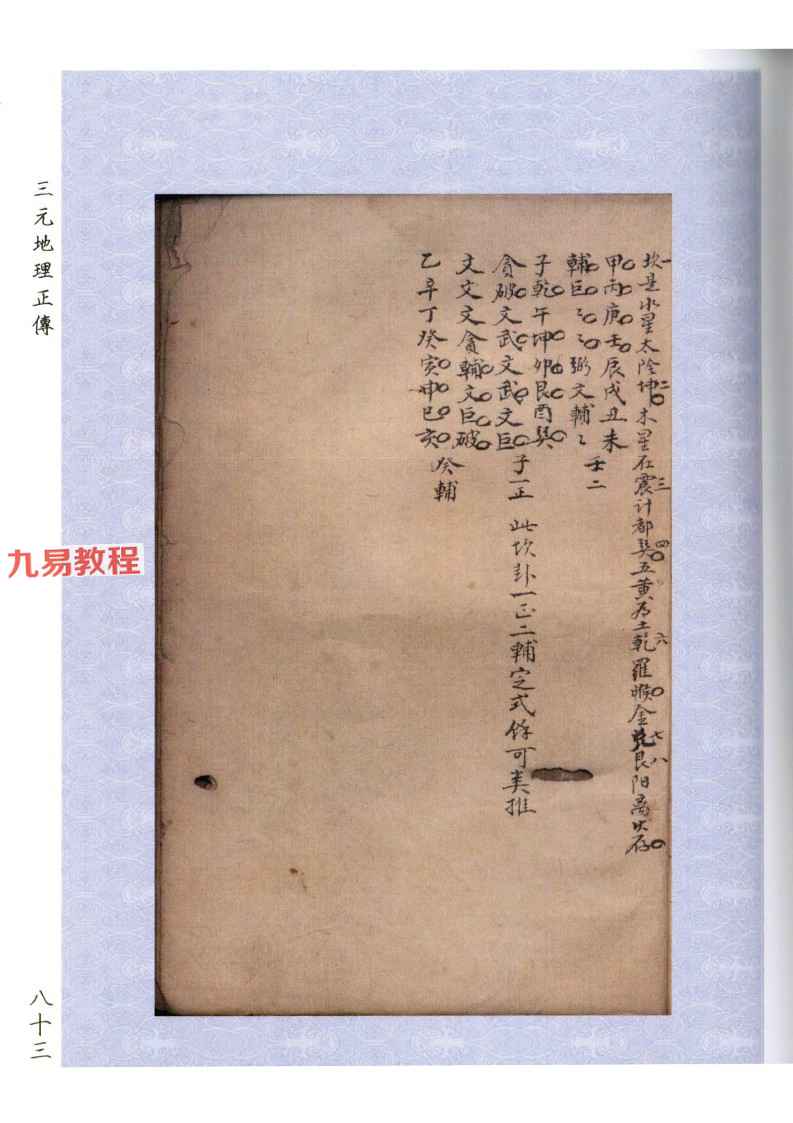 坎是水星太陰坤木星在震计都巽五黄為土乾羅睺金兑艮阳离火存
一 二 三 四 六 七 八
甲丙庚壬辰戌丑未 壬二
輔巨〻〻弼文輔〻
子乾午坤卯艮酉巽 子一正
貪破文武文武文巨 此坎卦一正二輔定式餘可类推
文文文貪輔文巨破 癸輔
乙辛丁癸寅申巳亥
三元地理正傳
八十三
九易教程